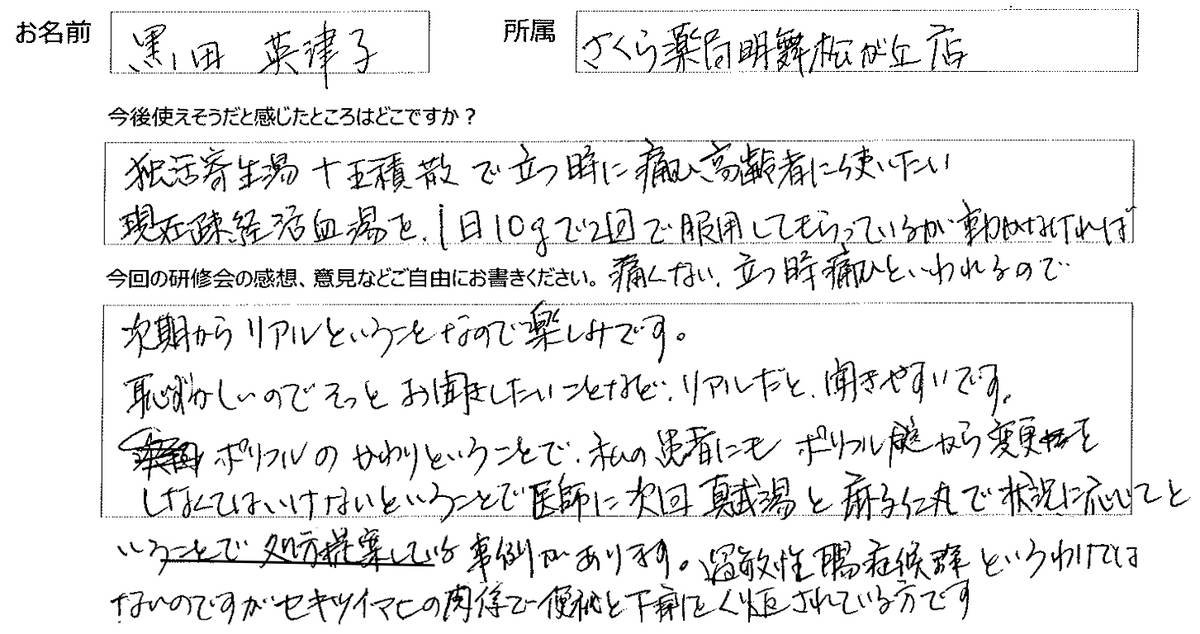 お名前 黒田 英津子 所属 さくら薬局明舞松が丘店
今後使えそうだと感じたところはどこですか？
独活寄生湯 十五積散で立つ時に痛い高齢者に使いたい
現在疎経活血湯を、1日10gで2回で服用してもらっているが動かなければ
今回の研修会の感想、意見などご自由にお書きください。痛くない、立つ時痛いといわれるので
次期からリアルということなので楽しみです。
恥ずかしいのでそっとお聞きしたいことなど、リアルだと、聞きやすいです。
ポリフルのかわりということで、私の患者にもポリフル錠から変更を
しなくてはいけないということで医師に次回真武湯と麻子仁丸で状況に応じてと
いうことで処方提案している事例があります。過敏性腸症候群というわけでは
ないのですがセキツイマヒの関係で便秘と下痢をくり返されている方です